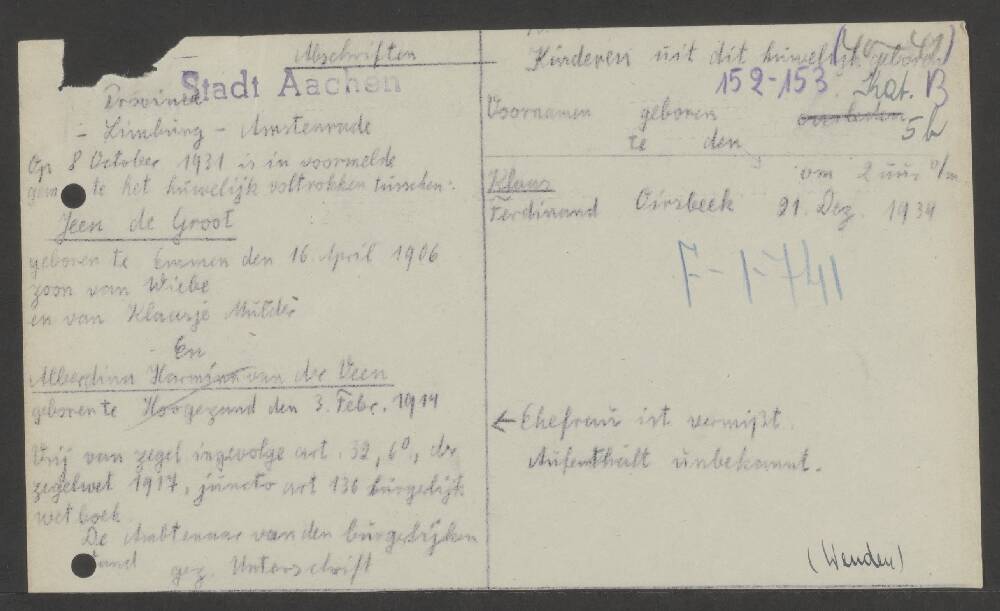 Abschriften
Stadt Aachen
Provincie
- Limburg - Amstenrade
Op 8 October 1931 is in voormelde
gem te het huwelijk voltrokken tusschen:
Jeen de Groot
geboren te Emmen den 16. April 1906
zoon van Wiebe
en van Klaasje Mulder
En
Alberdina Harmina van der Veen
geboren te Hoogezand den 3. Febr. 1914
Vrij van zegel ingevolge art. 32, 6°, der
zegelwet 1917, juncto art 136 burgerlijk
wetboek
De Ambtenaar van den burgerlijken
stand
gez. Unterschrift
Kinderen uit dit huwelijk gebore
152-153 Kat. B
Voornamen geboren overleden 5b
te den
om 2 uur
Klaas
Ferdinand Oirsbeek 21. Dez. 1939
F-1-741
← Ehefrau ist vermißt.
Aufenthalt unbekannt.
(Wenden)